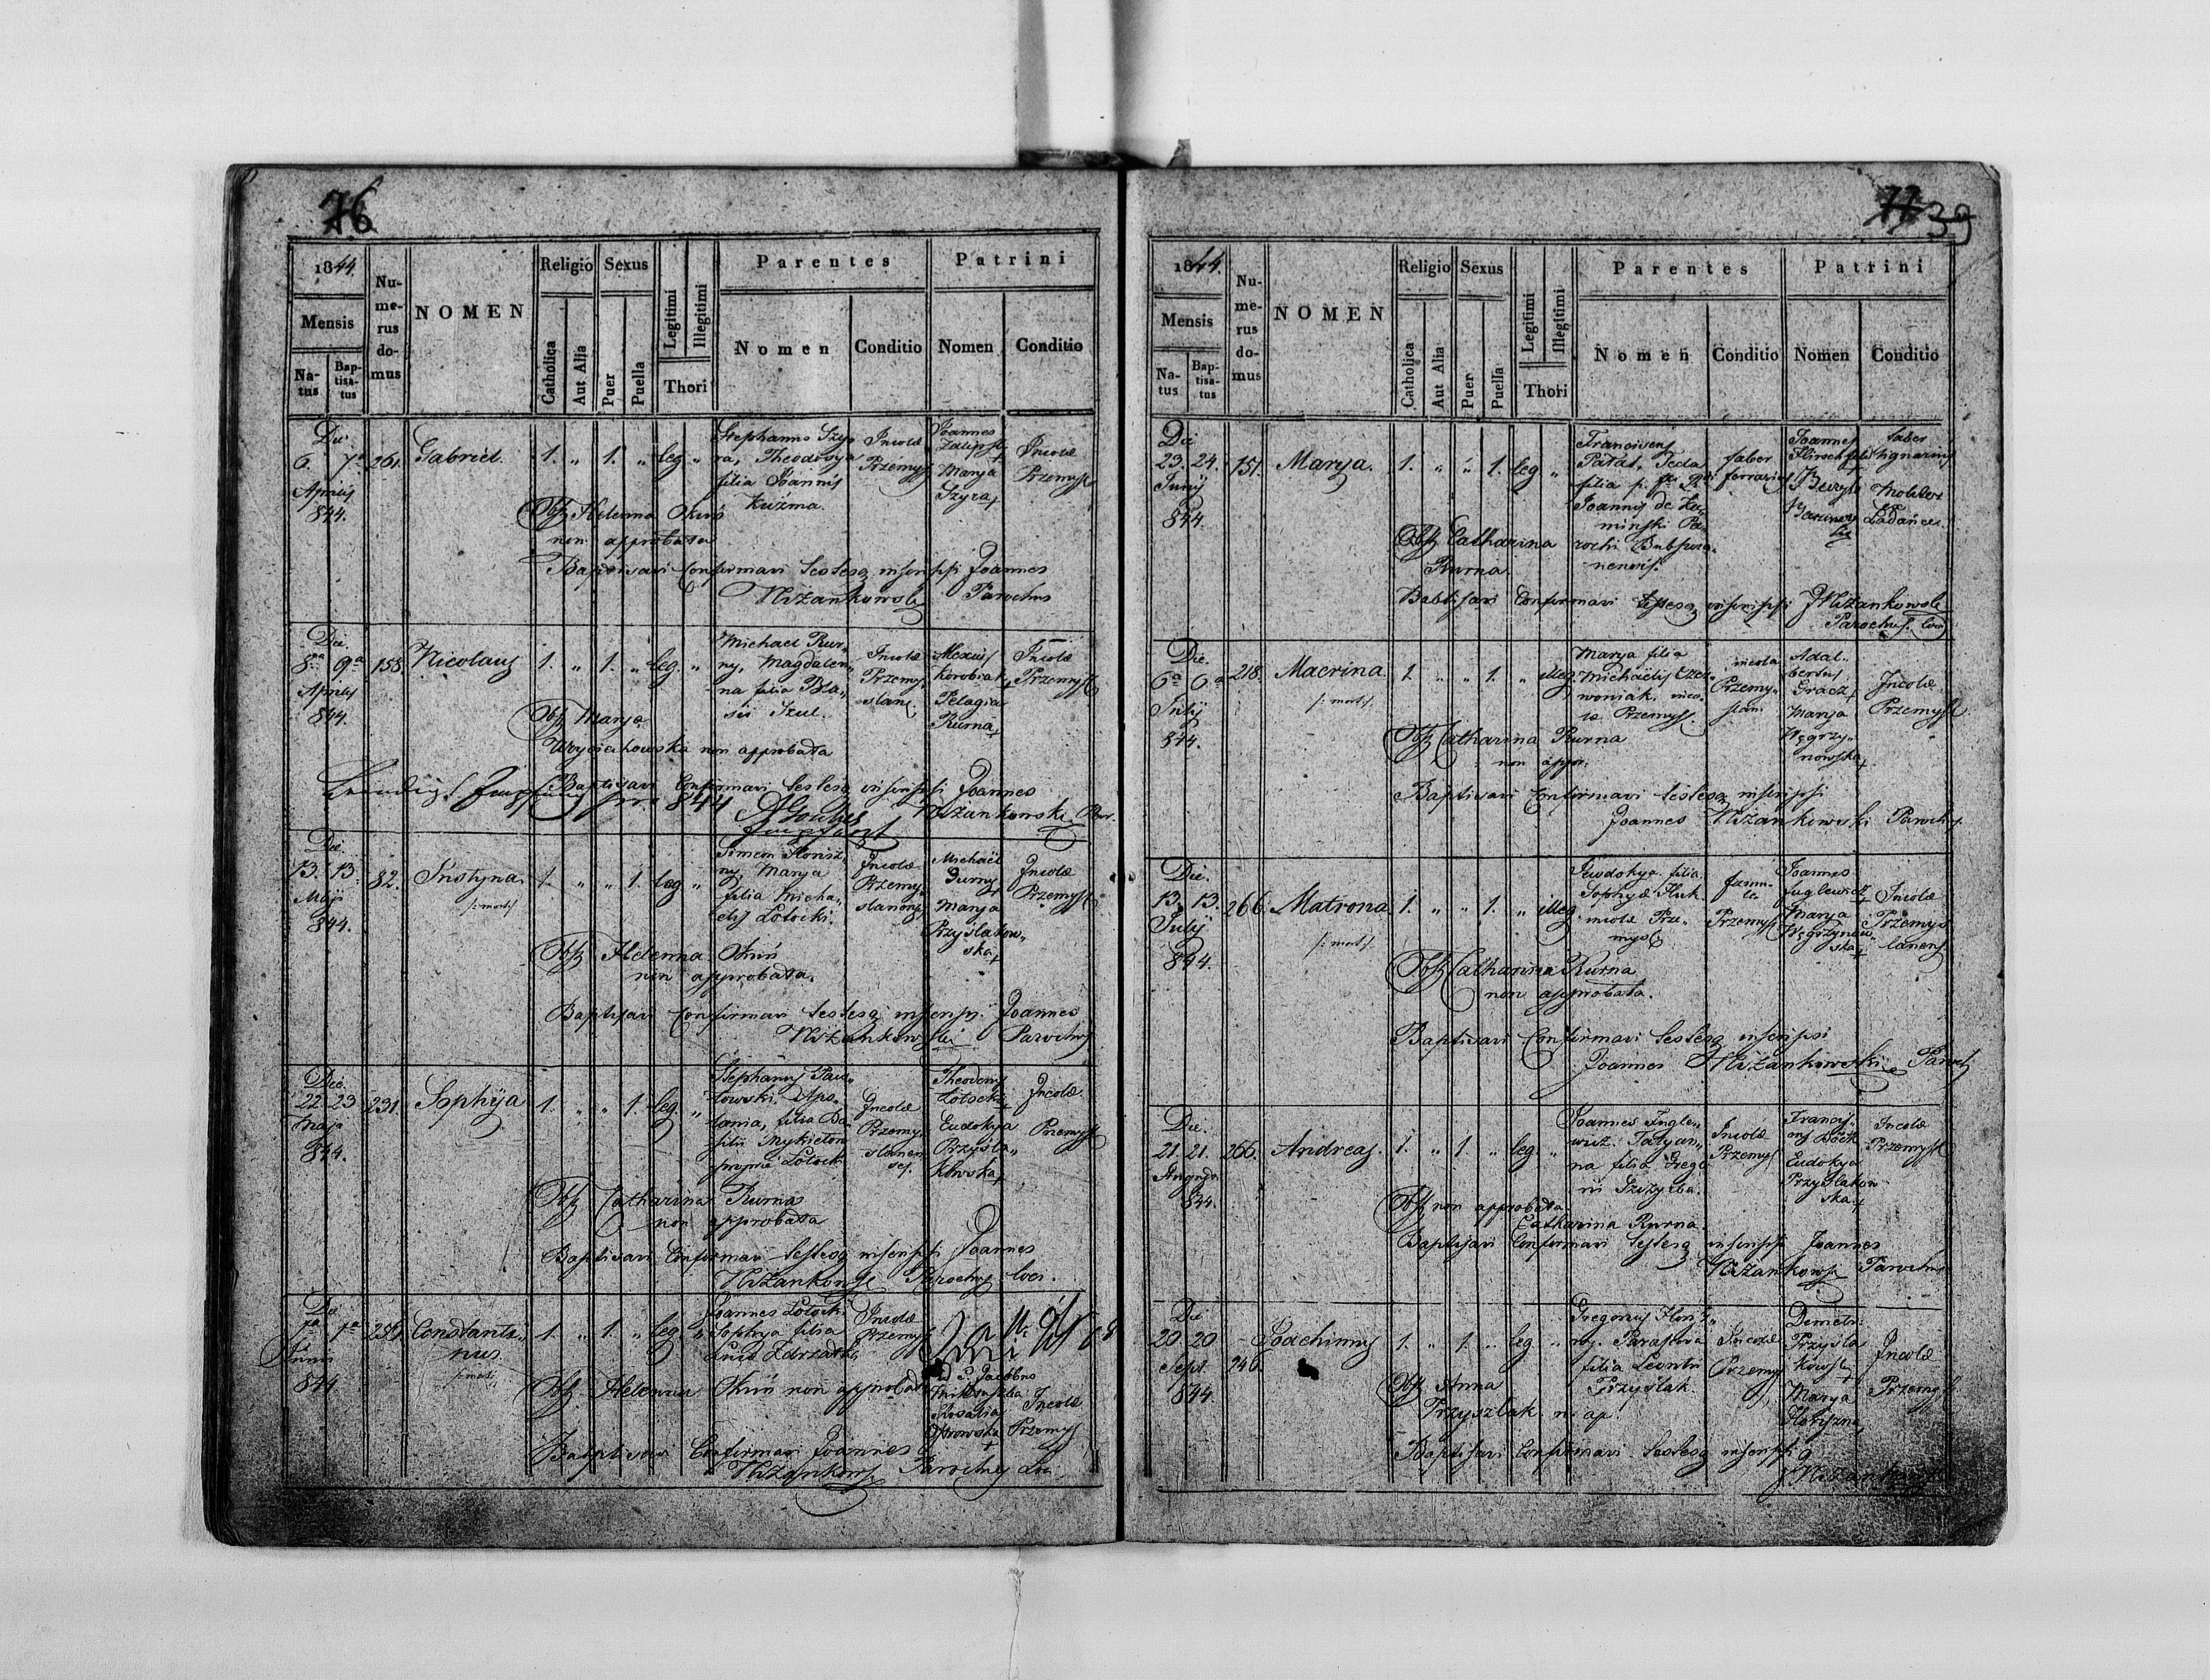 76
1844.
Mensis
Na-
tus
Bap-
tisa-
tus
Nu-
me-
rus
do-
mus
NOMEN
Religio
Catholica
Aut Alia
Sexus
Puer
Puella
Legitimi
Illegitimi
Thori
Parentes
Nomen
Conditio
Patrini
Nomen
Conditio
Die
6. 7a
Aprilis
844.
261.
Gabriel.
1. „ 1. „ leg „
Stephanus Szy
ra, Theodosya
filia Joannis
Kuźma.
Incolæ
Przemysl
Joannes
Marya
Szyra+
Incolæ
Przemysl
Obst Helenna Okuń
non approbata
Baptisavi Confirmavi testesq inscripsi Joannes
Niżankowski Parochus
Die.
8va 9a
Aprilis
844.
158.
Nicolaus
1. „ 1. „ leg. „
Michael Bur-
ny, Magdalen-
na filia Bla-
sii Szul.
Incolæ
Przemy-
slan
Alexius
Korobiak+
Pelagia
Rurna+
Incolæ
Przemysl
Obst Marya
Woyciechowska non approbata
Baptisavi Confirmavi testesq inscripsi Joannes
Niżankowski Par.
pro 844
Die.
13. 13.
Maji
844.
82.
Justyna.
/:mort:/
1. „ „ 1. leg „
Simeon Horisz-
ny, Marya
filia Micha-
elis Łotocki.
Incolæ
Przemy-
slanens
Michael
Burny+
Marya
Przyślakow-
ska+
Incolæ
Przemysl
Obst Helenna Okuń
non approbata.
Baptisavi Confirmavi testesq inscripsi. Joannes
Niżankowski Parochus
Die.
22. 23
Maja
844.
231
Sophija
1. „ „ 1 leg. „
Stephanus Paw-
łowski. Apo-
lonia, filia Ba-
silii Mykieton
proprie Łotocki
Incolæ
Przemy-
slanen
ses.
Theodorus
Łotocki+
Eudokya
Przyśla-
kowska+
Incolæ
Przemysl
Obst Catharina Rurna
non approbata
Baptisavi Confirmavi testesq inscripsi Joannes
Niżankowski Parochus loci.
Die
1a 1a
Junii
844
Constanti-
nus
/:mort:/
1. „ 1. „ leg „
Joannes Łotocki
Sophya filia
Incolæ
Przemysl
Jacobus
Rosalia
Ostrowska
+
Incolæ
Przemysl
Obst Helenna Okuń non approbata
Baptisavi Confirmavi Joannes
Niżankowski Parochus Loci
77 39
1844.
Mensis
Na-
tus
Bap-
tisa-
tus
Nu-
me-
rus
do-
mus
NOMEN
Religio
Catholica
Aut Alia
Sexus
Puer
Puella
Legitimi
Illegitimi
Thori
Parentes
Nomen
Conditio
Patrini
Nomen
Conditio
Die
23. 24.
Junij
844.
151.
Marya.
1. „ „ 1. leg „
Franciscus
Pałat, Tecla
filia p. 
Joannis de 
minski Pa-
rochi
faber
ferrarius
Joannes
faber
lignarius
Molitor
ex
Ładańce
Obst Catharina
Rurna.
Babtisavi Confirmavi testesq inscripsi J Niżankowski
Parochus. loci
Die.
6a 6a
Julij
844.
218.
Macrina
/:mort:/
1. „ „ 1. „ illeg.
Marya filia
Michaelis Czer-
woniak, inco-
læ Przemysl.
incola
Przemy-
slan:
Adal-
bertus
Gracz+
Marya
Węgrzy-
nowska+
Incolæ
Przemysl.
Obst Catharina Rurna
non appr:
Baptisavi Confirmavi testesq inscripsi
Joannes Niżankowski Parochus
Die.
13. 13.
Julij
844.
266.
Matrona
/:mort:/
1. „ „ 1. „ illeg.
Ewdokya filia
Sophyæ Hluk
incolæ Prze-
mysl
famu-
la
Przemysl
Joannes
Juglewicz+
Marya
Węgrzynow-
ska+
Incolæ
Przemys-
lanens
Obst Catharina Rurna
non approbata.
Baptisavi Confirmavi testesq inscripsi
Joannes Niżankowski Paroch
Die.
21. 21.
Augusti
844.
266.
Andreas.
1. „ 1. „ leg „
Joannes Jugle-
wicz. Tatyan-
na filia Grego
rii
Incolæ
Przemysl
Francis-
cus Böck
Eudokya
Przyślakow
ska+
Incolæ
Przemysl
Obst non approbata
Catharina Rurna.
Baptisavi Confirmavi testesq inscripsi Joannes
Niżankowski Parochus
Die
20 20
Sept
844.
246.
Joachimus
1. „ 1. „ leg „
Gregorius Horisz-
ny. Paraskeva
filia Leontii
Przyślak.
Incolæ
Przemysl
Demetri
Przyśla
kowski+
Marya
Horiszna
Incolæ
Przemysl.
Obst Anna
Przyszlak n. ap.
Baptisavi Confirmavi testesq inscripsi
J Niżankowski